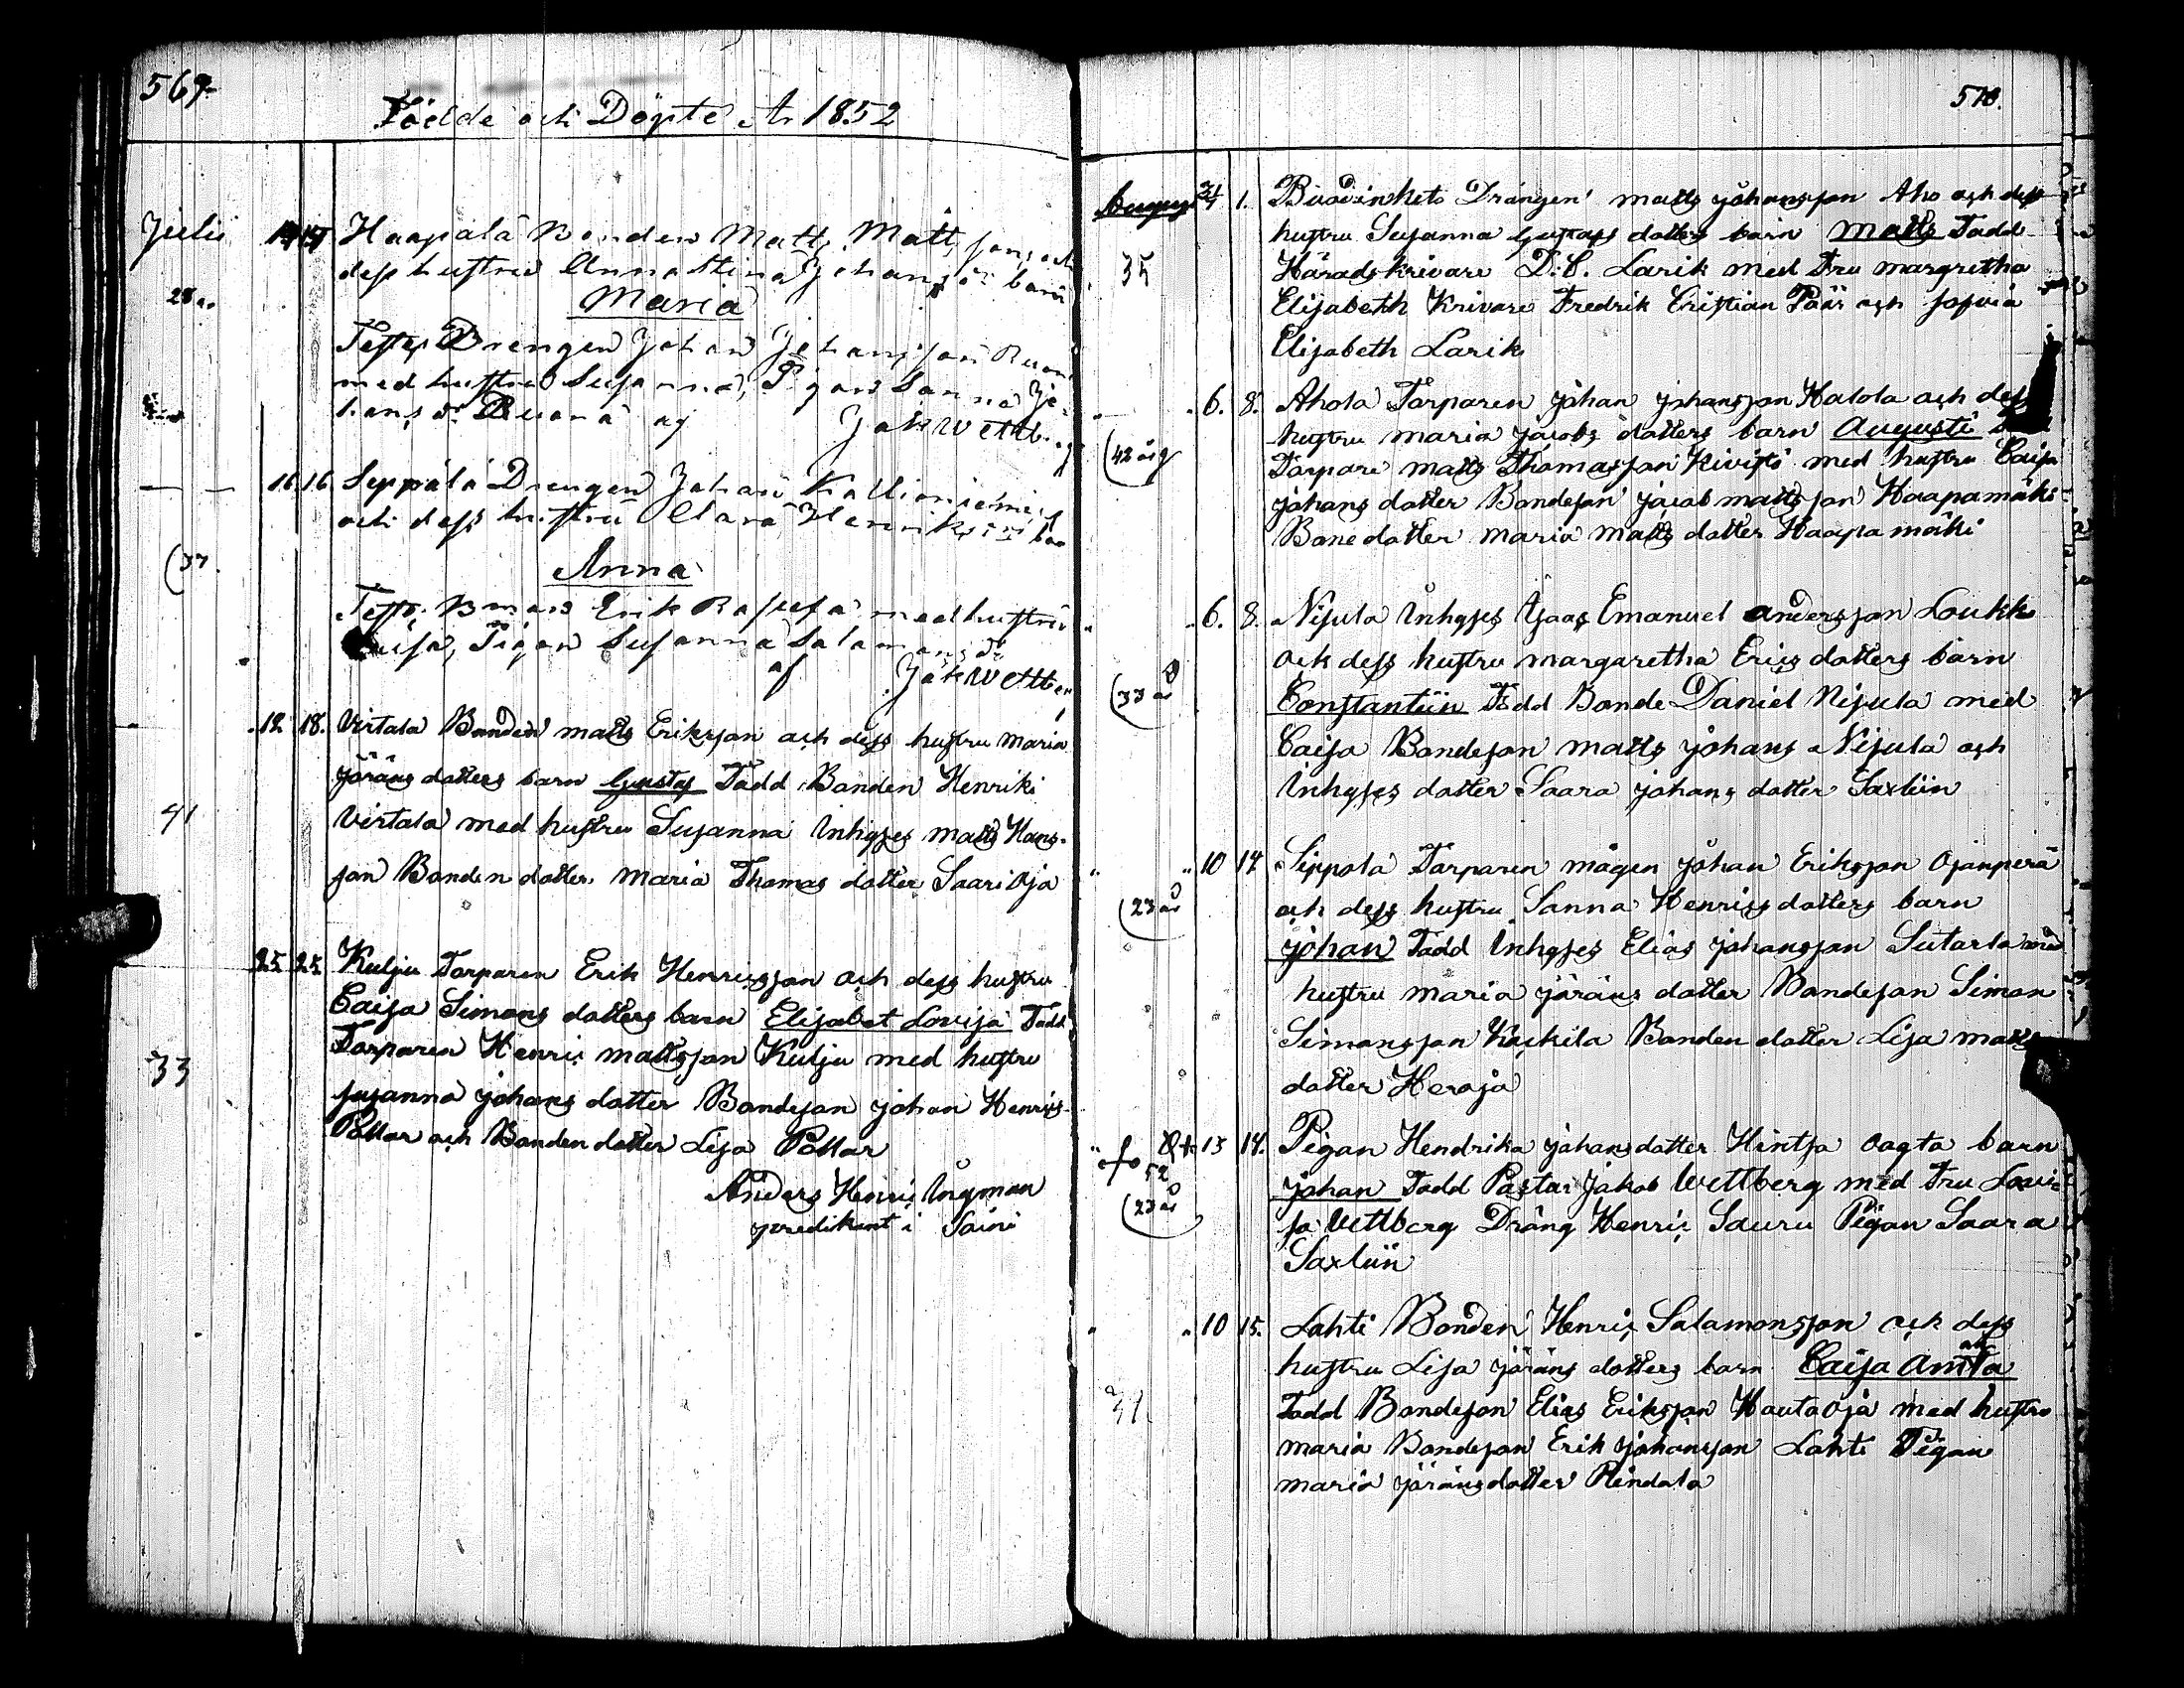 569
Födde och Döpte År 1852
Julii 14 15 Haapala Bonden Matts Matts son och
dess hustru Anna Stina Johans dr barn
28 år
Maria
Test. Drengen Johan Johans son Ruona
med hustru Susanna, Pigan Sanna Jo-
hans dr Ruona af Jak Wettberg
16. 16. Seppälä Drengen Johan Kallioniemi
och dess hustru Clara Henriks dr barn
(37.
Anna
Test. Erik Rasusa med hustru
Caisa, Pigan Susanna Salamons dr
af Jak Wettber
12 18. Virtala Bonden matts Eriksson och dess hustru maria
Jöräns dotters barn Gustaf Fadd Bonden Henriki
41
Virtala med hustru Susanna Inhyses matts Hans-
son Bonden dotter maria Thomas dotter Saari Oja
25 25 Kulju Torparen Erik Henricsson och dess hustru
Caisa Simons dotters barn Elisabet Lovisa Fadd
33
Torparen Henric mattsson Kulju med hustru
susanna johans dotter Bondeson johan Henrics
Pollar och Bonden dotter Lisa Pollar
Anders Henric Ingman
predikant i Soini
570.
August 1. Drängen matts johansson Aho och dess
hustru Susanna Gustafs dotters barn Matts Fadd
35
Häradskrivare D. C. Larik med Fru margretha
Elisabeth Krivare Fredrik Cristian Päär och sofvia
Elisabeth Larik
6. 8. Ahola Torparen johan johansson Halola och dess
hustru maria jacobs dotters barn Augusti
(42 årg
Torpare matts Thomasson Kivistö med hustru Caisa
johans dotter Bondeson jacob matts son Haapamäki
Bonedotter maria matts dotter Haapamäki
6. 8. Nisula Inhyses Emanuel andersson Loukk
och dess hustru margaretha Erics dotters barn
(33 år
Constantiin Fadd Bonde Daniel Nisula med
Caisa Bondeson matts johans Nisula och
Inhyses dotter Saara johans dotter Saxliin
10 14 Sippola Torparen mågen johan Eriksson Ojanperä
(23 år
och dess hustru Sanna Henrics dotters barn
johan Fadd Inhyses Elias johansson Sutarla med
hustru maria jöräns dotter Bondeson Simon
Simonsson Koskila Bonden dotter Lisa matts
dotter Heroja
13 14. Pigan Hendrika johans dotter Hintsa oagta barn
52
johan Fadd Pastar Jakob Wettberg med Fru Lovi-
(23 år
sa Wettberg Dräng Henric Sauru Pigan Saara
Saxliin
10 15. Lahti Bonden Henric Salamonsson och dess
hustru Lisa jöräns dotters barn Caisa Amta
31
Fadd Bondeson Elias Eriksson Hautaoja med hustru
maria Bondeson Erik johansson Lahti Pigan
maria jöränsdotter Rindala